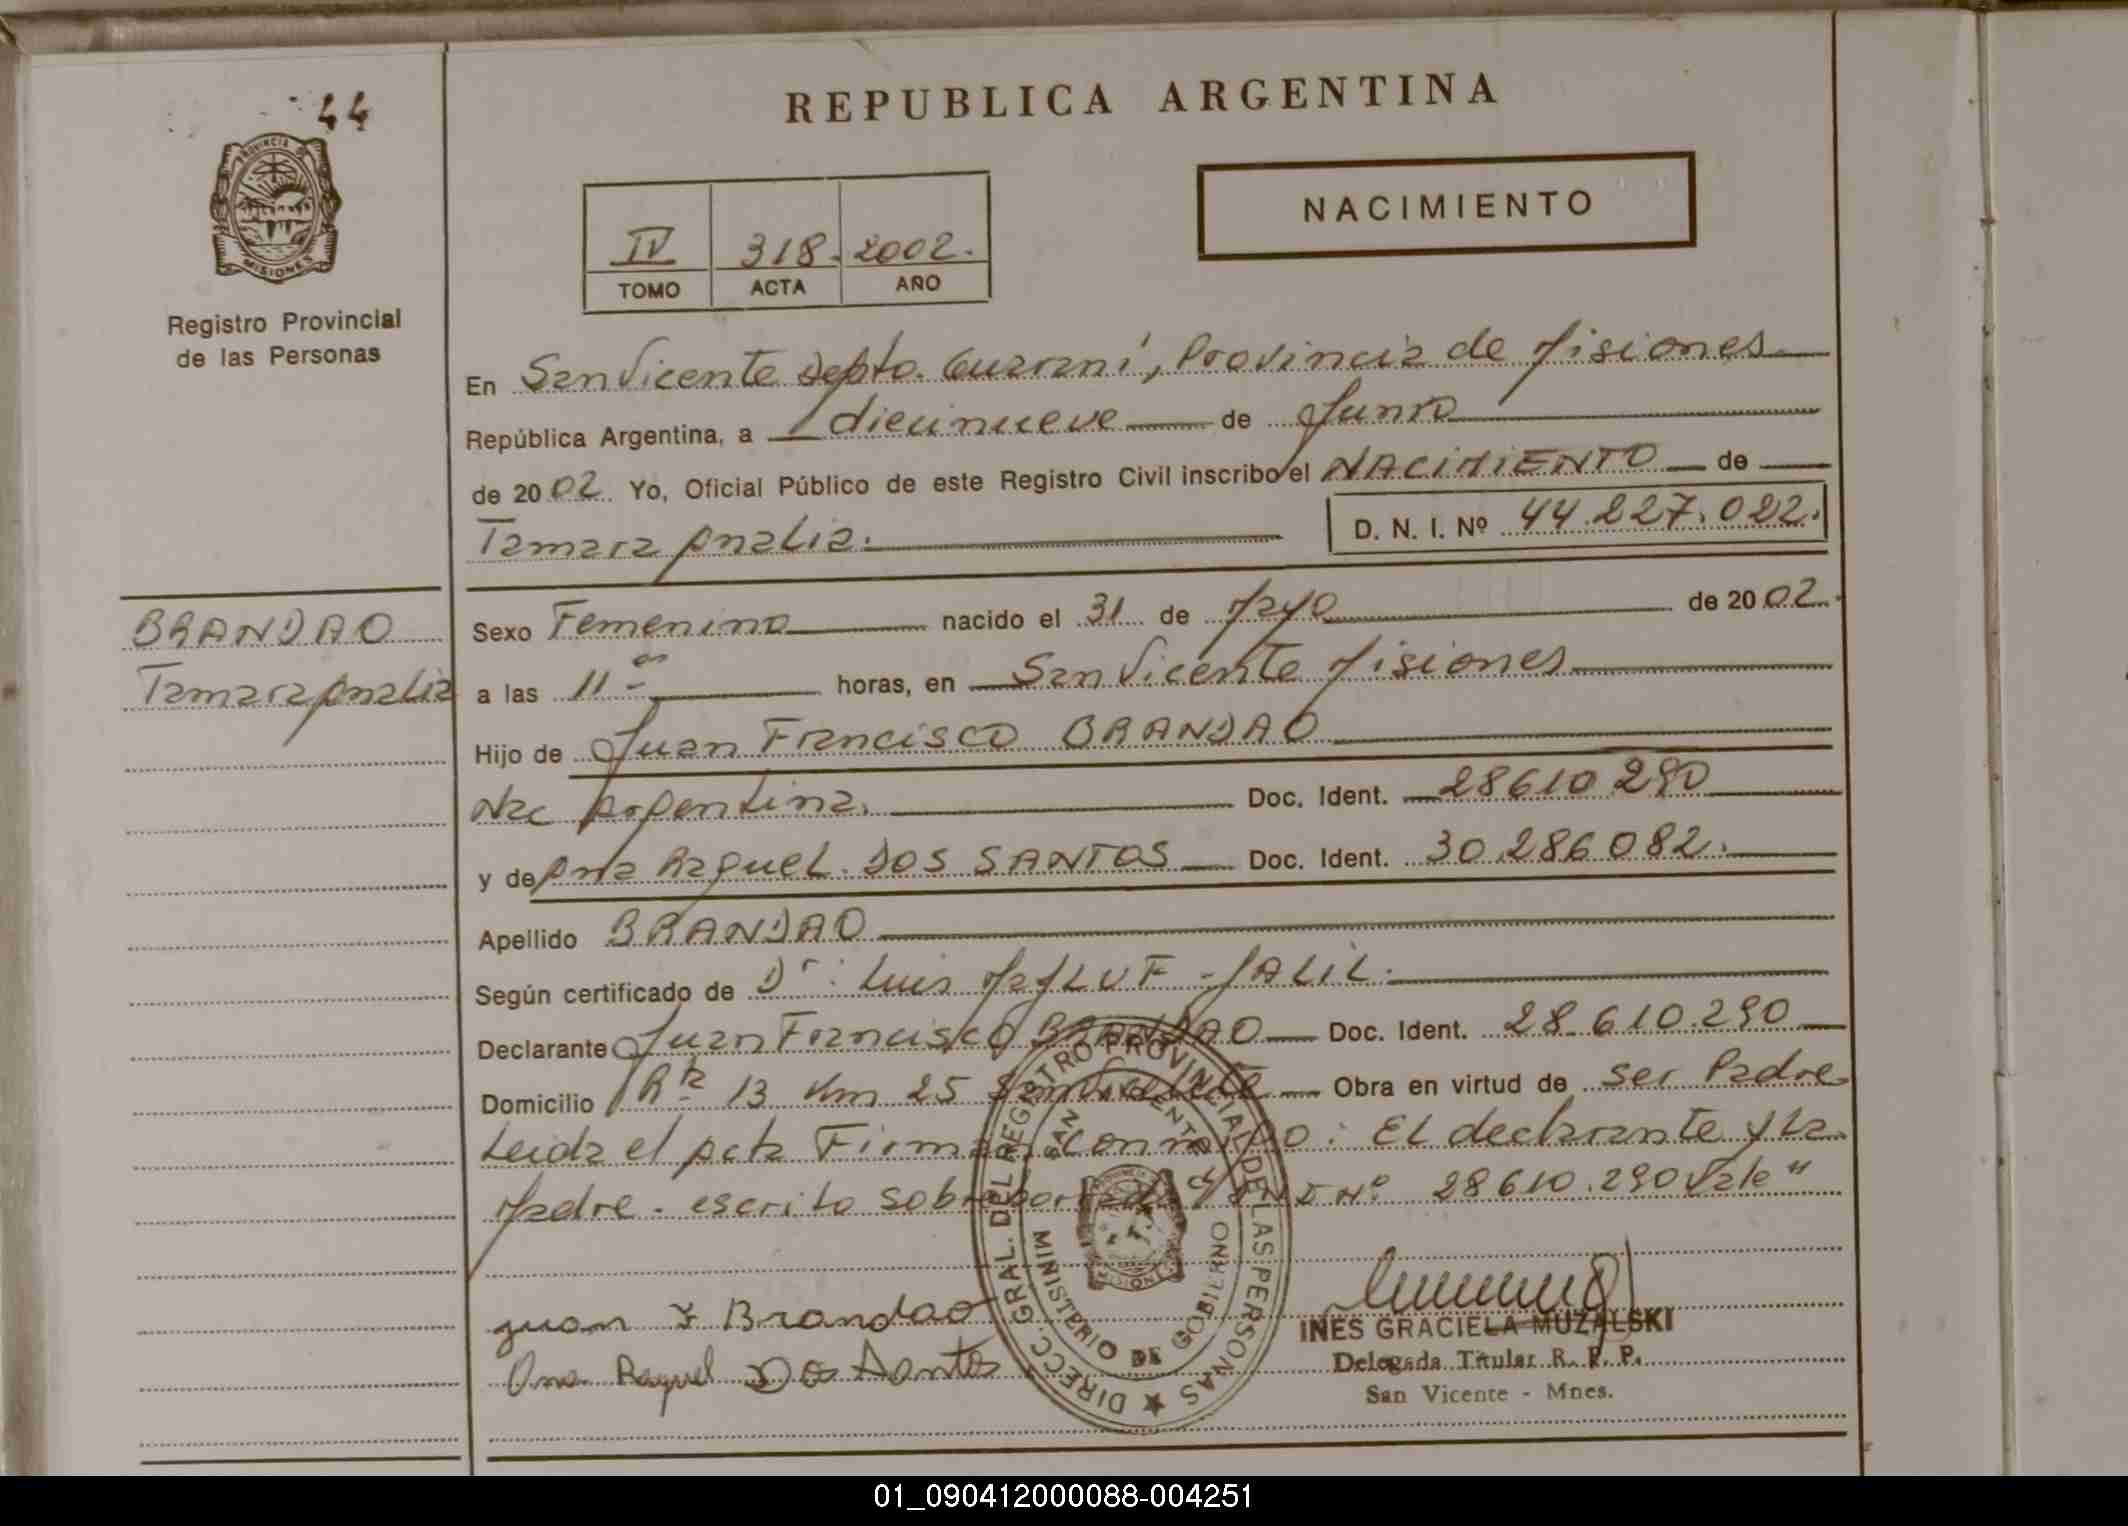 44
REPUBLICA ARGENTINA
PROVINCIA DE
MISIONES
IV 318. 2002.
TOMO ACTA AÑO
NACIMIENTO
Registro Provincial
de las Personas
En San Vicente Depto. Guarani, Provincia de Misiones
República Argentina, a diecinueve de Junio
de 2002 Yo, Oficial Público de este Registro Civil inscribo el NACIMIENTO de
Tamara Analia.
D. N. I. Nº 44.227.022.
BRANDAO
Tamara Analia
Sexo Femenino nacido el 31 de Mayo de 2002.
a las 11 hs horas, en San Vicente Misiones
Hijo de Juan Francisco BRANDAO
Nac Argentina. Doc. Ident. 28610290
y de Ana Raquel DOS SANTOS Doc. Ident. 30.286.082.
Apellido BRANDAO
Según certificado de Dr: Luis JALIL.
Declarante Juan Francisco BRANDAO Doc. Ident. 28.610.290
Domicilio Rta 13 Km 25 San Vicente Obra en virtud de ser Padre
Leida el acta Firman conmigo: El declarante y la
Madre. escrito sobreborrado "DNI Nº 28610.290 Vale"
juan F Brandao
Ana Raquel Dos Santos
DIRECC. GRAL. DEL REGISTRO PROVINCIAL DE LAS PERSONAS
SAN VICENTE
MINISTERIO DE GOBIERNO
MISIONES
INES GRACIELA MUZALSKI
Delegada Titular R. P. P.
San Vicente - Mnes.
01_090412000088-004251